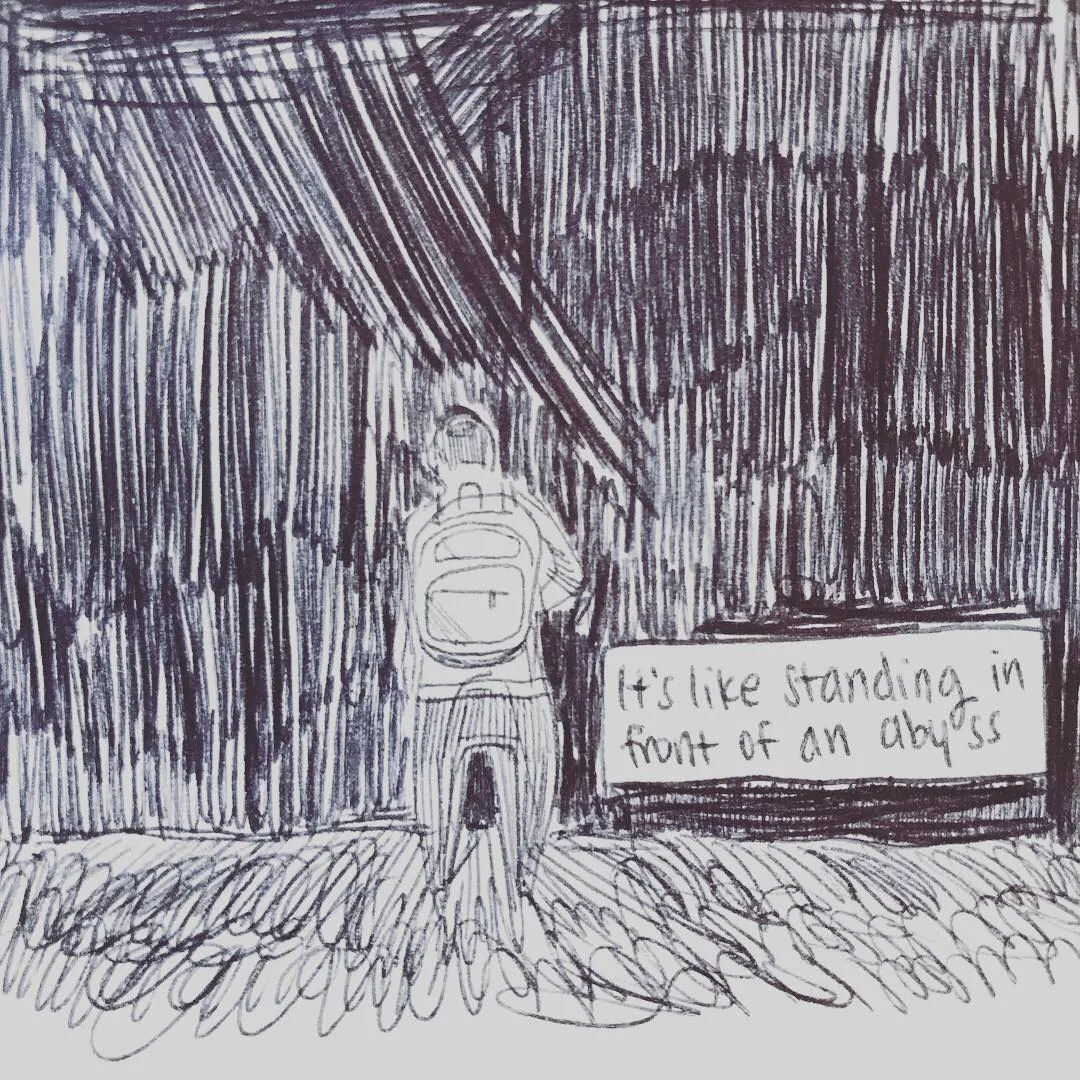 It's like standing in
front of an abyss